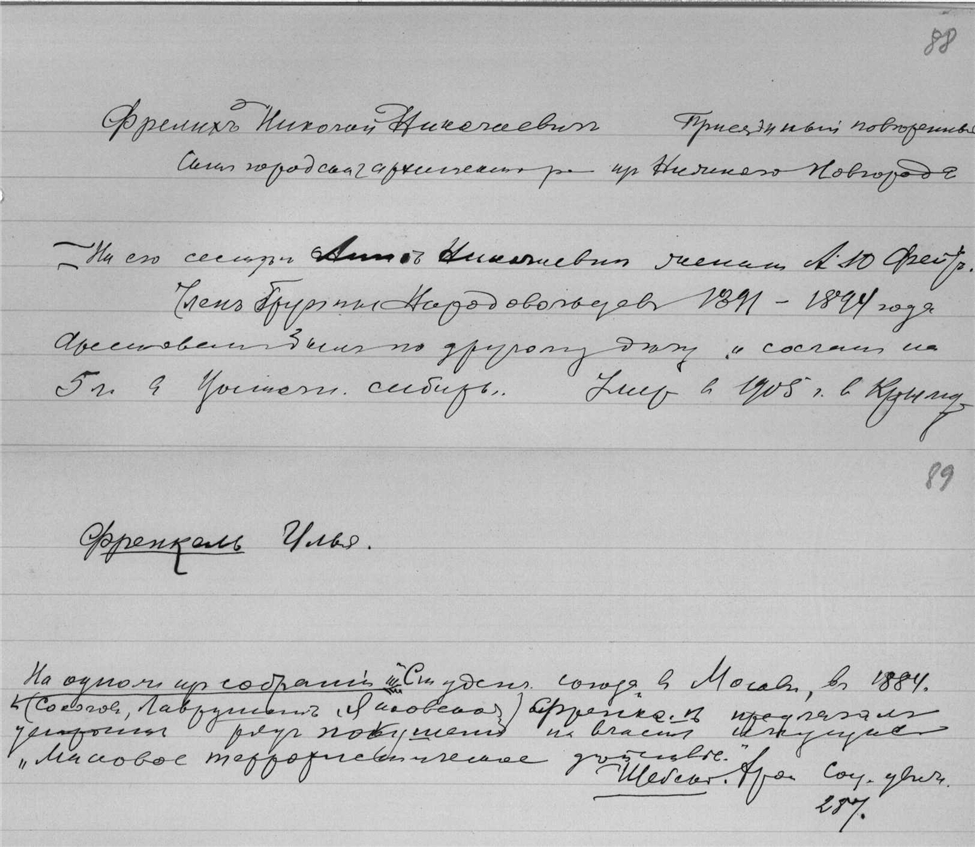 88
Фрелихъ Николай Николаевич Присяжный поверенный
Сын городского архитектора из Нижнего Новгорода
На его сестре Анне Николаевне женат А. Ю. Фейт.
Член Группы Народовольцев 1891 – 1894 года
Арестован был по другому делу и сослан на
5 л. в Восточн. Сибирь. Умер в 1905 г. в Крыму
89
Френкель Илья.
На одном из собраний "Студен. союза" в Москве, в 1884.
(Соколов, Лаврушин, Яковская) Френкель предлагал
устроить ряд покушений на власть имущие
"Массовое террористическое действие".
Шебеко. Хрон. соц. движ.
287.